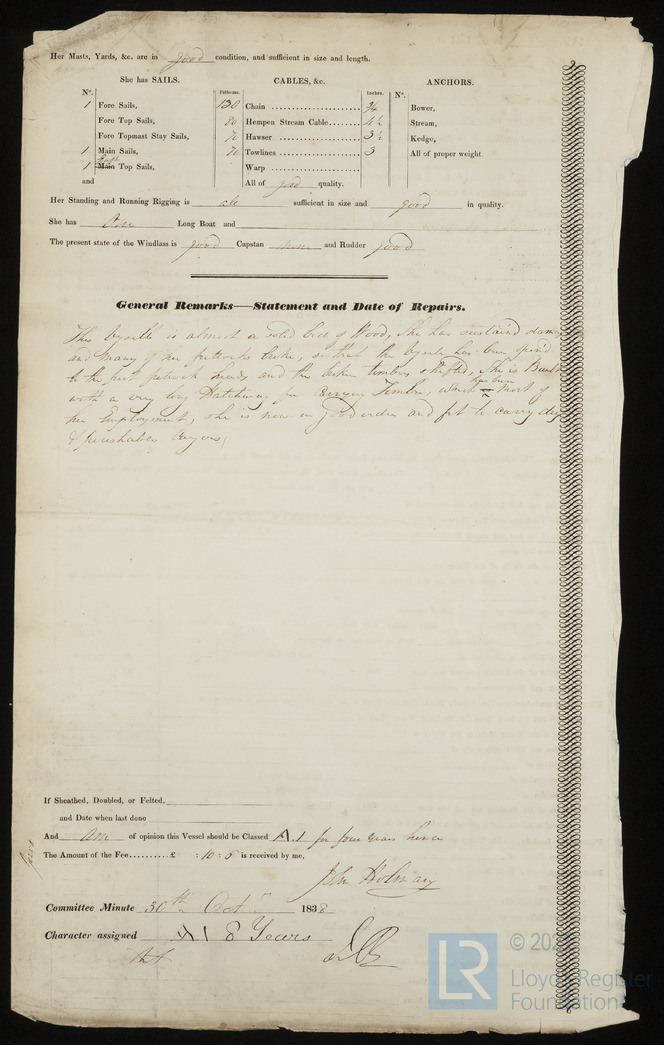 Her Masts, Yards, &c. are in good condition, and sufficient in size and length.
She has SAILS. CABLES, &c. ANCHORS.
No. Fathoms. Inches. No.
1 Fore Sails, 120 Chain 3/4 Bower,
Fore Top Sails, 80 Hempen Stream Cable 4½ Stream,
Fore Topmast Stay Sails, 70 Hawser 3½ Kedge,
1 Main Sails, 70 Towlines 3 All of proper weight.
1 Main Top Sails, Warp
and All of good quality.
Her Standing and Running Rigging is sufficient in size and good in quality.
She has One Long Boat and
The present state of the Windlass is good Capstan none and Rudder good
General Remarks—Statement and Date of Repairs.
This is almost a solid of Wood, She has sustain'd
and many of her futtocks broke, so that the has been
to the first futtock heads and the broken timbers shifted, She is Built
with a very long Hatchway for Carrying Timber, which has been most of
her Employment, she is now in good order and fit to carry dry
& perishable Cargoes,
If Sheathed, Doubled, or Felted,
and Date when last done
And am of opinion this Vessel should be Classed A.1 for four years hence
The Amount of the Fee £ : 10 : 5 is received by me,
John
Committee Minute 30th Oct 1838
Character assigned A1 8 Years
LR © 202
Lloyd's Register
Foundation